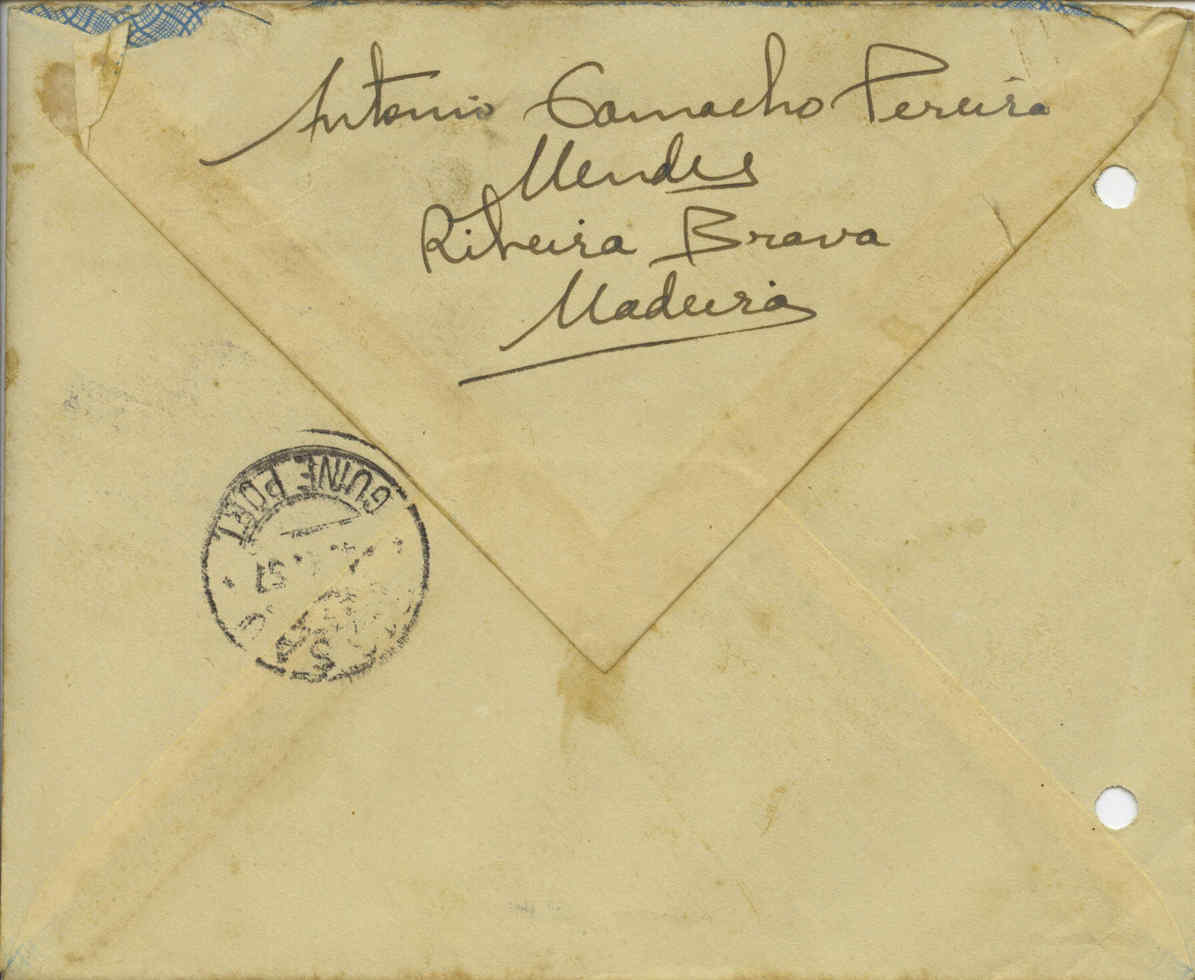 Antonio Camacho Pereira
Mendes
Ribeira Brava
Madeira
GUINE PORT.
57